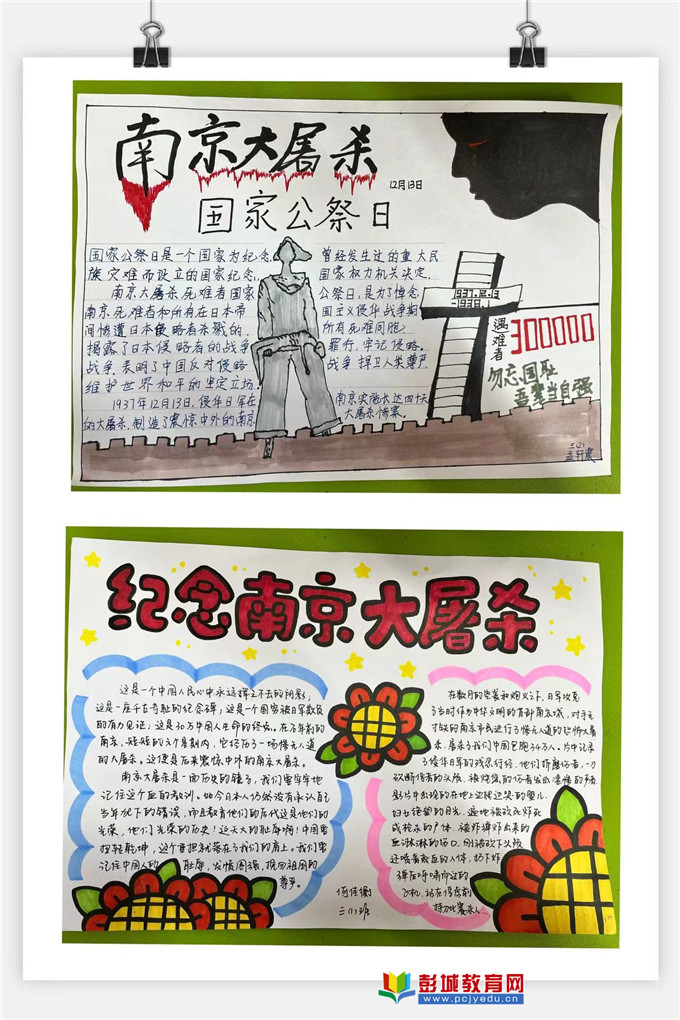 南京大屠杀
12月13日
国家公祭日
国家公祭日是一个国家为纪念 曾经发生过的重大民
族灾难而设立的国家纪念, 国家权力机关决定.
南京大屠杀死难者国家 公祭日,是为了悼念
南京死难者和所有在日本帝 国主义侵华战争期
间惨遭日本侵略者杀戮的 所有死难同胞,
揭露了日本侵略者的战争 罪行,牢记侵略.
战争.表明了中国反对侵略 战争捍卫人类尊严,
维护世界和平的坚定立场
1937年12月13日,侵华日军在 南京实施长达四十天
的大屠杀,制造了震惊中外的南京 大屠杀惨案.
1937.12.13
-1938.1
遇难者
300000
勿忘国耻
吾辈当自强
三(2)
孟轩震
纪念南京大屠杀
这是一个中国人民心中永远挥之不去的阴影,
这是一座千古奇耻的纪念碑,这是一个国穷被日军欺负
的有力见证,这是30万中国人生命的终结。在百年前的
南京,短短的6个星期内,它经历了一场惨无人道
的大屠杀。这便是历来震惊中外的南京大屠杀。
南京大屠杀是一面历史的镜子,我们要牢牢地
记住这个血的教训。如今日本人仍然没有承认自己
当年犯下的错误,而且教育他们的后代这是他们的
光荣,他们光荣的历史!这天大的耻辱啊!中国要
扭转乾坤,这个重担就落在了我们的肩上。我们要
记住中国人的耻辱,发愤图强,挽回祖国的
尊严。
三(1)班
在数月的空袭和炮火之下,日军攻克
了当时作为中华文明的首都南京城,对手无
寸铁的南京市民进行了惨无人道的恐怖大屠
杀,屠杀了我们中国已胞30万人。片中记录
了侵华日军的残杀行径,他们折磨伤者,一刀
影片中出现的在地上近挨过哭的婴儿
妇女绝望的目光。遍地被
彭城教育网
www.pcjyedu.cn